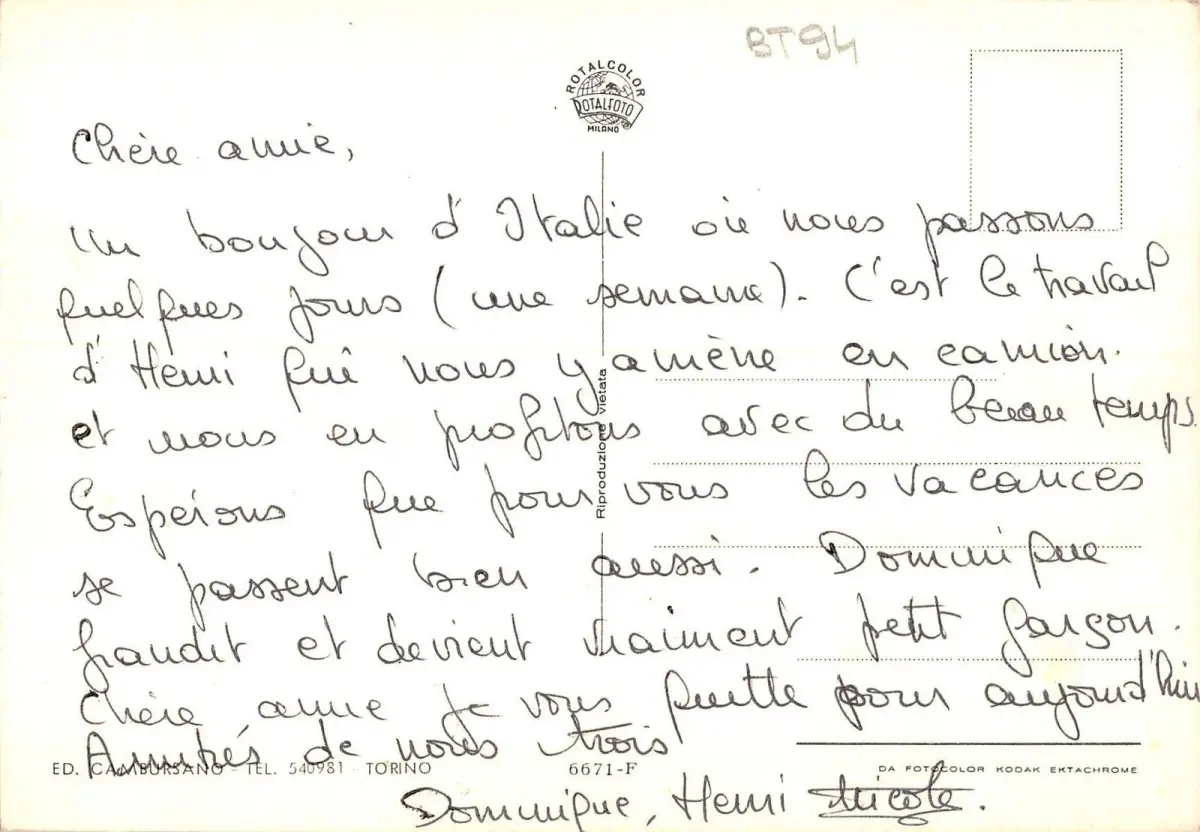 BT94
ROTALCOLOR
ROTALFOTO
MILANO
Chère amie,
Un boujour d'Italie où nous passons
quelques jours (une semaine). C'est le travail
d'Henri qui nous y amène en camion.
et nous en profitons avec du beau temps.
Espérons que pour vous les vacances
se passent bien aussi. Dominique
grandit et devient vraiment petit garçon.
Chère amie je vous quitte pour aujourd'hui
Amitiés de nous trois
Dominique, Henri Nicole.
Riproduzione vietata
ED. CAMBURSANO - TEL. 540981 - TORINO
6671-F
DA FOTOCOLOR KODAK EKTACHROME